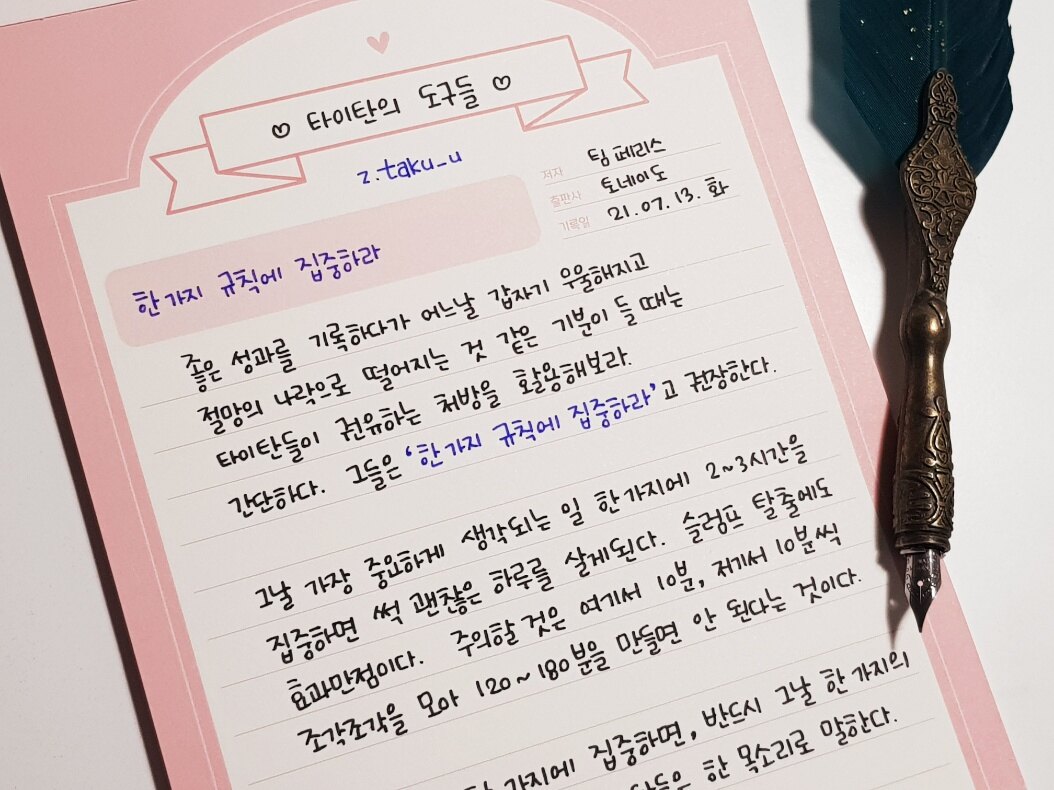 ♡ 타이탄의 도구들 ♡
z.taku_u
저자 팀 페리스
출판사 토네이도
기록일 21.07.13. 화
한 가지 규칙에 집중하라
좋은 성과를 기록하다가 어느날 갑자기 우울해지고
절망의 나락으로 떨어지는 것 같은 기분이 들 때는
타이탄들이 권유하는 처방을 활용해보라.
간단하다. 그들은 '한 가지 규칙에 집중하라'고 권장한다.
그날 가장 중요하게 생각되는 일 한가지에 2~3시간을
집중하면 썩 괜찮은 하루를 살게된다. 슬럼프 탈출에도
효과만점이다. 주의할 것은 여기서 10분, 저기서 10분씩
조각조각을 모아 120~180분을 만들면 안 된다는 것이다.
가지에 집중하면, 반드시 그날 한 가지의
한 목소리로 말한다.